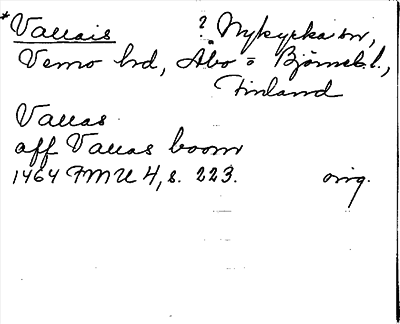 *Vallais ? Nykyrka sn,
Vemo hd, Åbo o Björneb. l.,
Finland
Vallas
aff Vallas boom
1464 FMU 4, s. 223. orig.